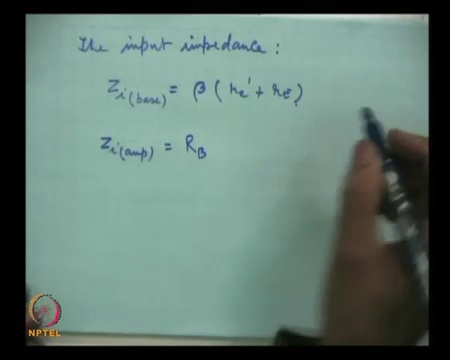 The input impedance :
Z i(base) = β ( re' + rE )
Z i(amp) = RB
NPTEL